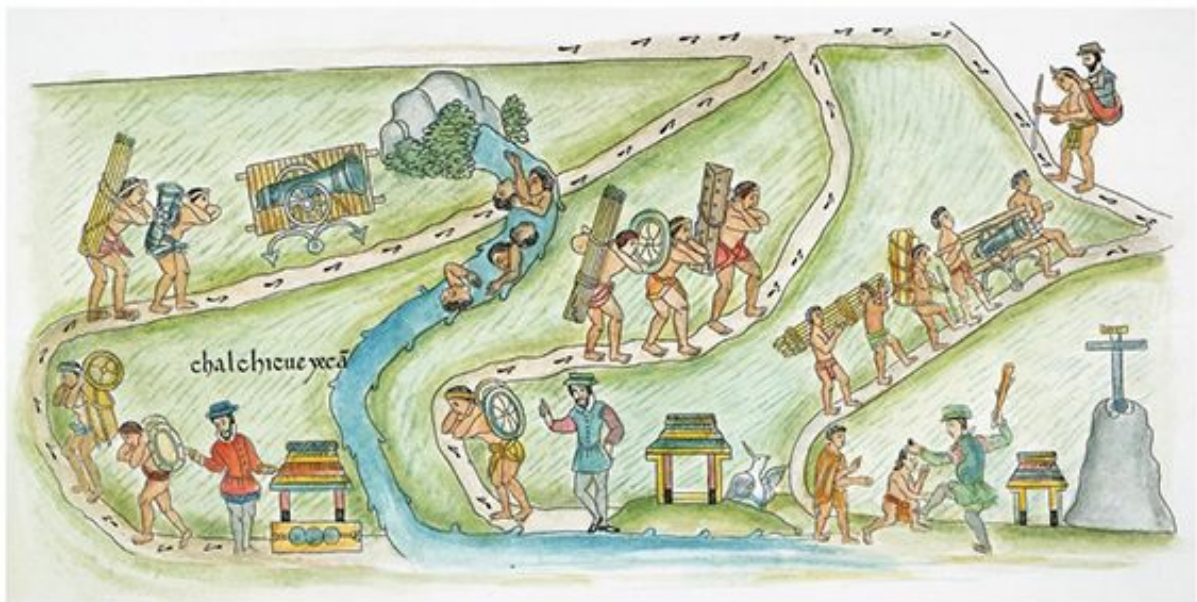 chalchicueyecā